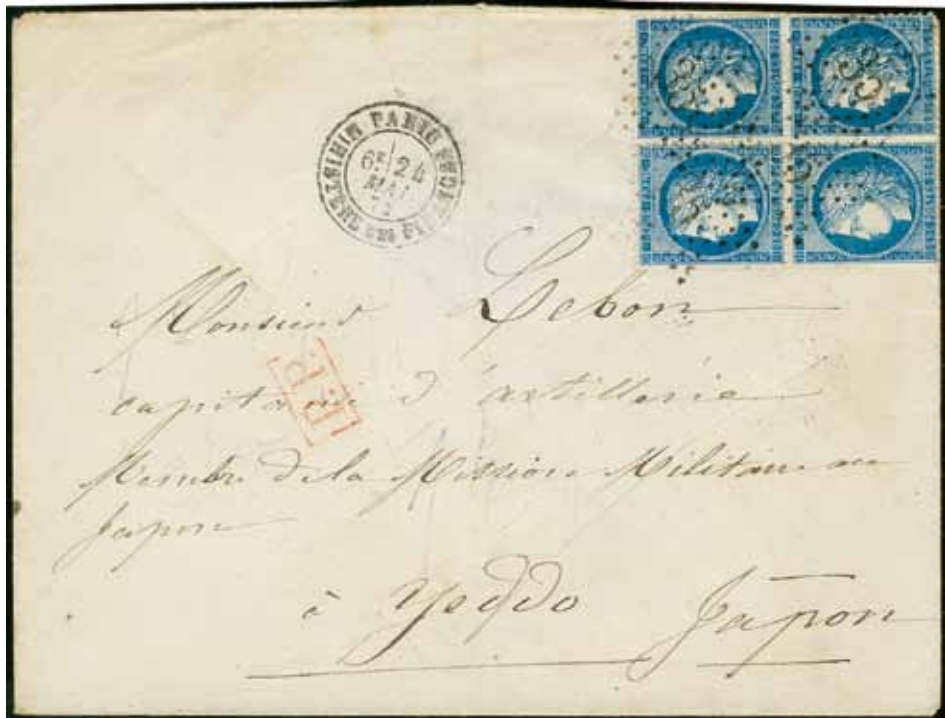 PARIS
6E 24
MAI
P.P.
Monsieur Lebon
capitaine d'artillerie
Membre de la Mission Militaire au
Japon
à Yeddo Japon